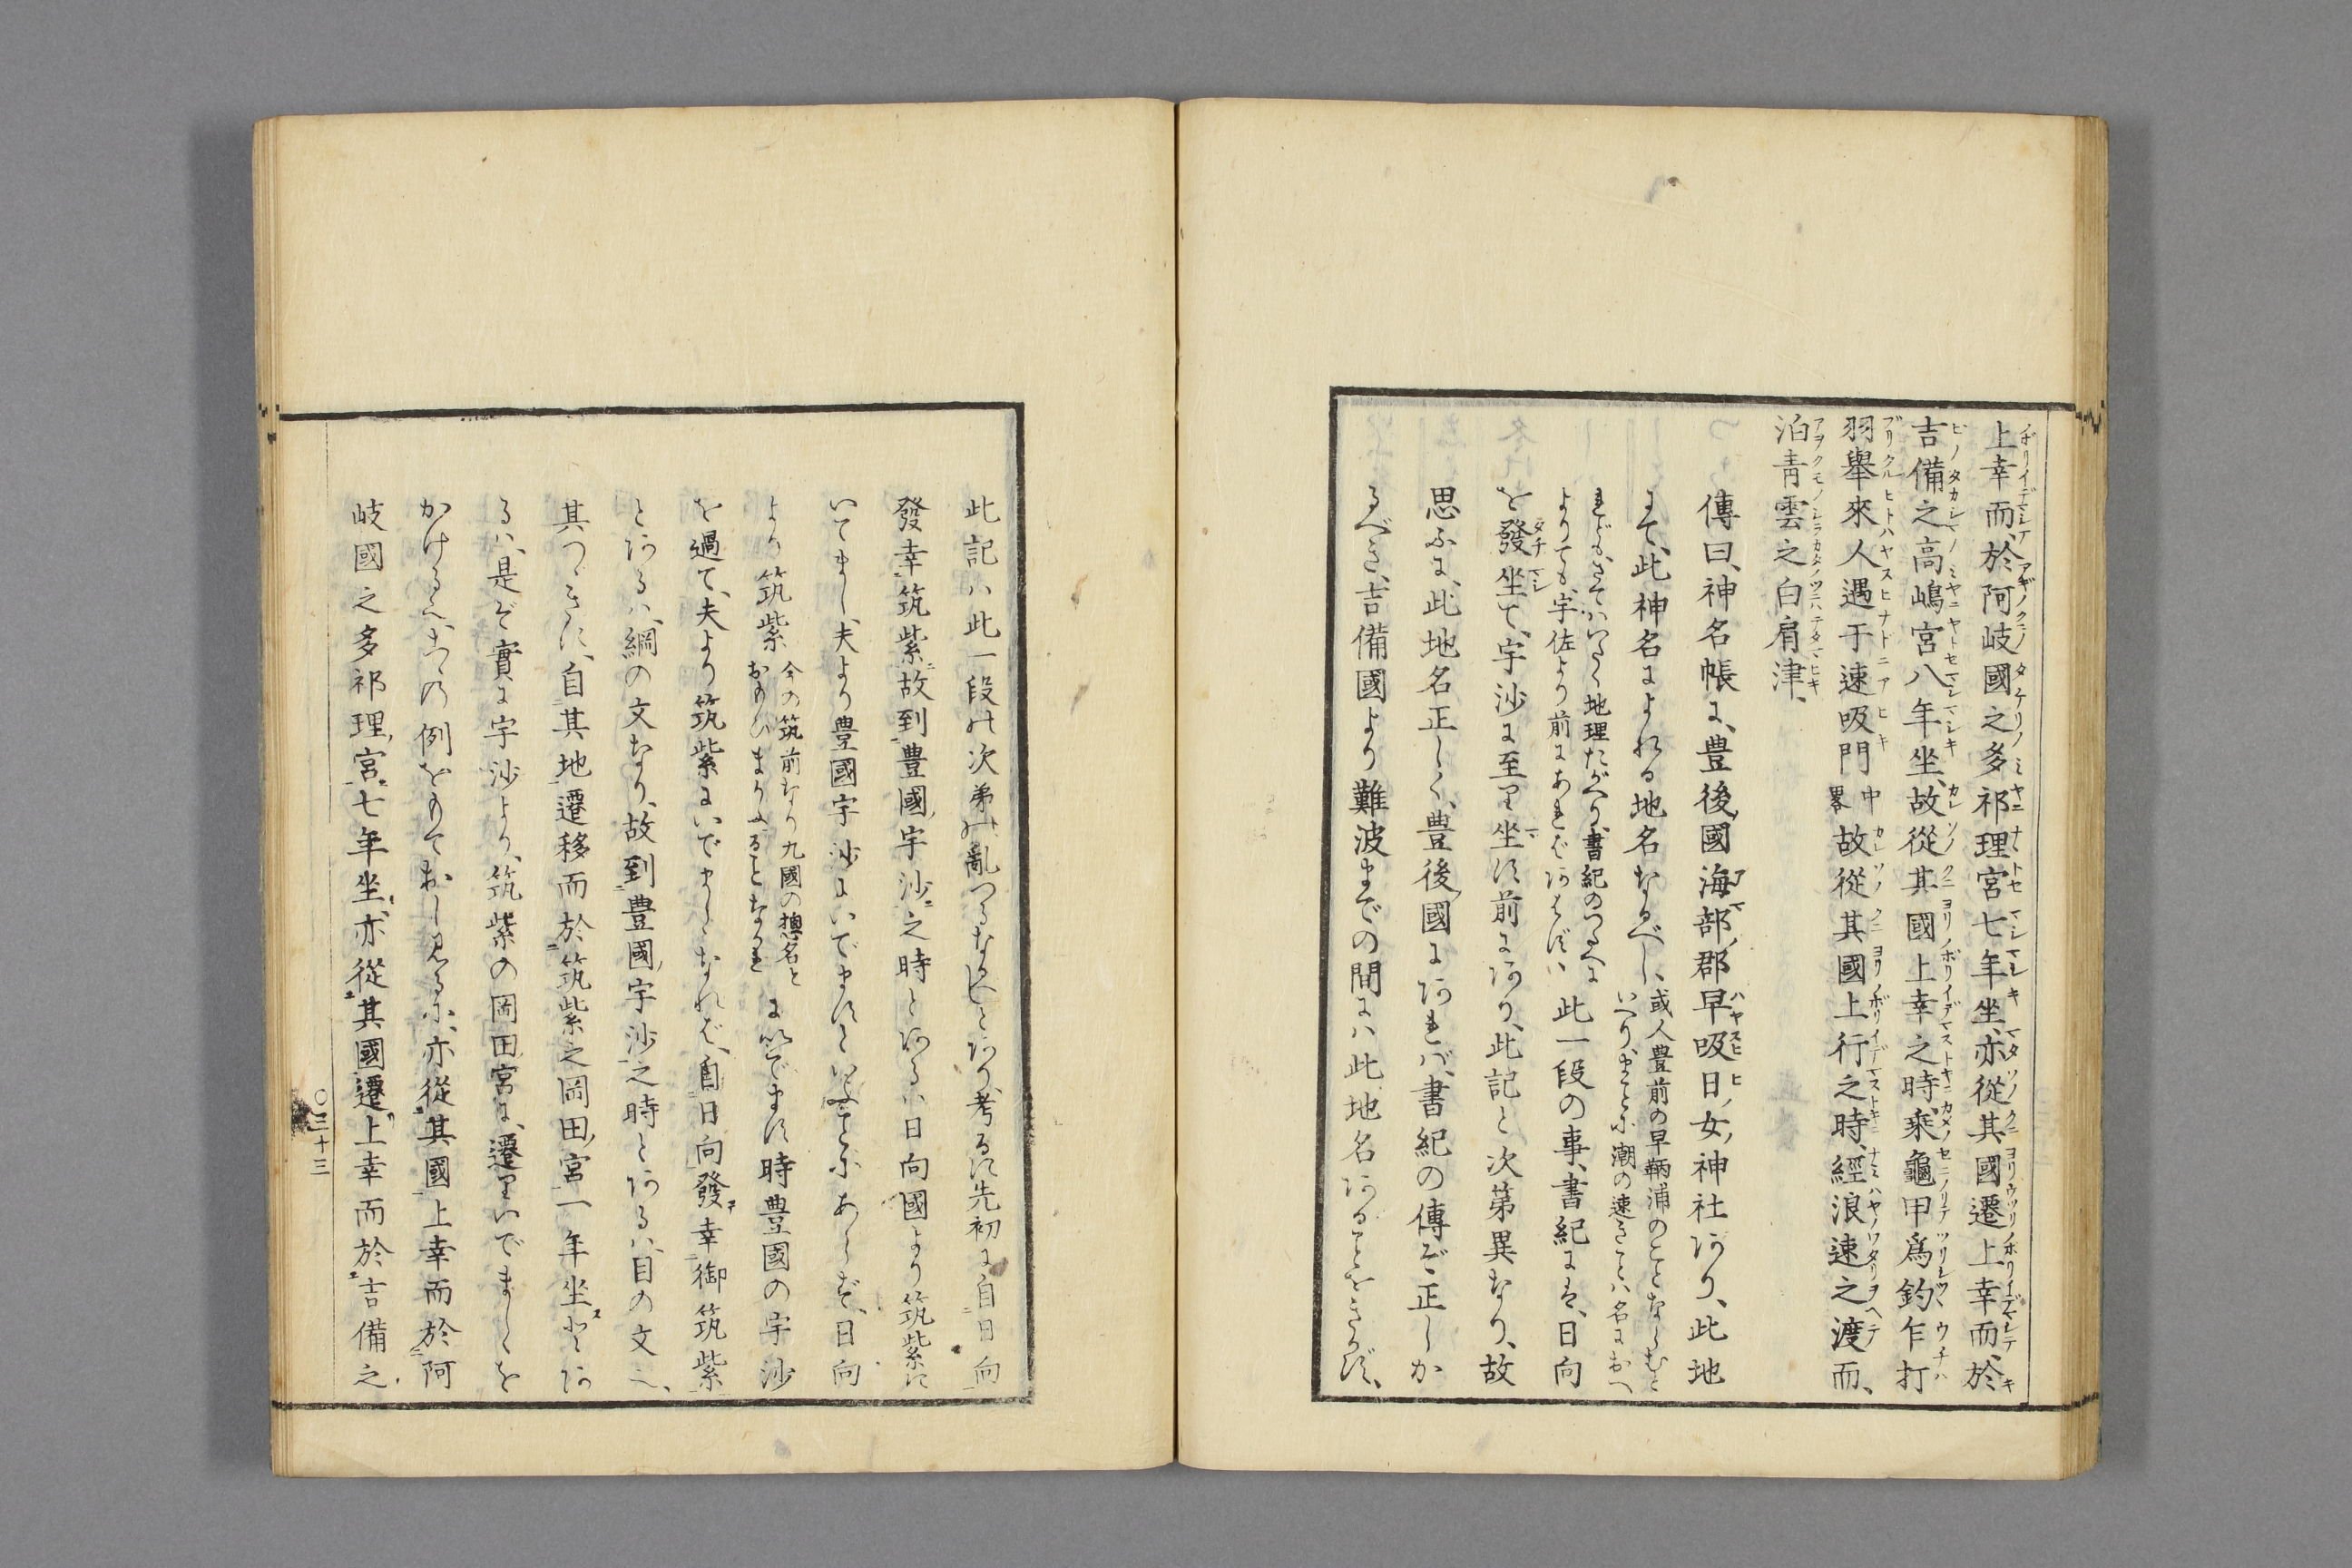 上幸而、於阿岐國之多祁理宮七年坐、亦從其國遷上幸而、於
吉備之高嶋宮八年坐、故從其國上幸之時、乘龜甲爲釣乍打
羽舉來人遇于速吸門 中畧 故從其國上行之時、經浪速之渡而、
泊青雲之白肩津、
傳曰、神名帳に、豊後國海部郡早吸日女神社あり、此地
にて、此神名によれる地名なるべし、 或人豊前の早鞆浦のことならむと
いへりまことに潮の速きことハ名におへ
れども、さてハいたく地理たがへり、書紀のつたへに
よりても、宇佐より前にあれバあはずハ 此一段の事、書紀にも、日向
を發坐て、宇沙に至り坐す前にあり、此記と次第異なり、故
思ふに、此地名正しく、豊後國にあれバ、書紀の傳ぞ正しか
るべき、吉備國より難波までの間にハ此地名あることをきかず、
此記ハ此一段の次第の亂つるなるべしとあり考るに先初に自日向
發幸筑紫故到豊國宇沙之時とあるハ日向國より筑紫に
いでまし、夫より豊國宇沙にいでますといふことにあらず、日向
より筑紫 今の筑前なり九國の摠名と
おもひまがふることなかれ にいでます時豊國の宇沙
を過て、夫より筑紫にいでましゝなれバ、自日向發幸御筑紫
とあるハ、綱の文なり、故到豊國宇沙之時とあるハ、目の文也、
其つゞきに、自其地遷移而於筑紫之岡田宮一年坐とあ
るハ、是ぞ實に宇沙より、筑紫の岡田宮に、遷りいでましゝを
かける也、こゝの例をもておし見るに、亦從其國上幸而於阿
岐國之多祁理宮七年坐、亦從其國遷上幸而於吉備之
〇三十三